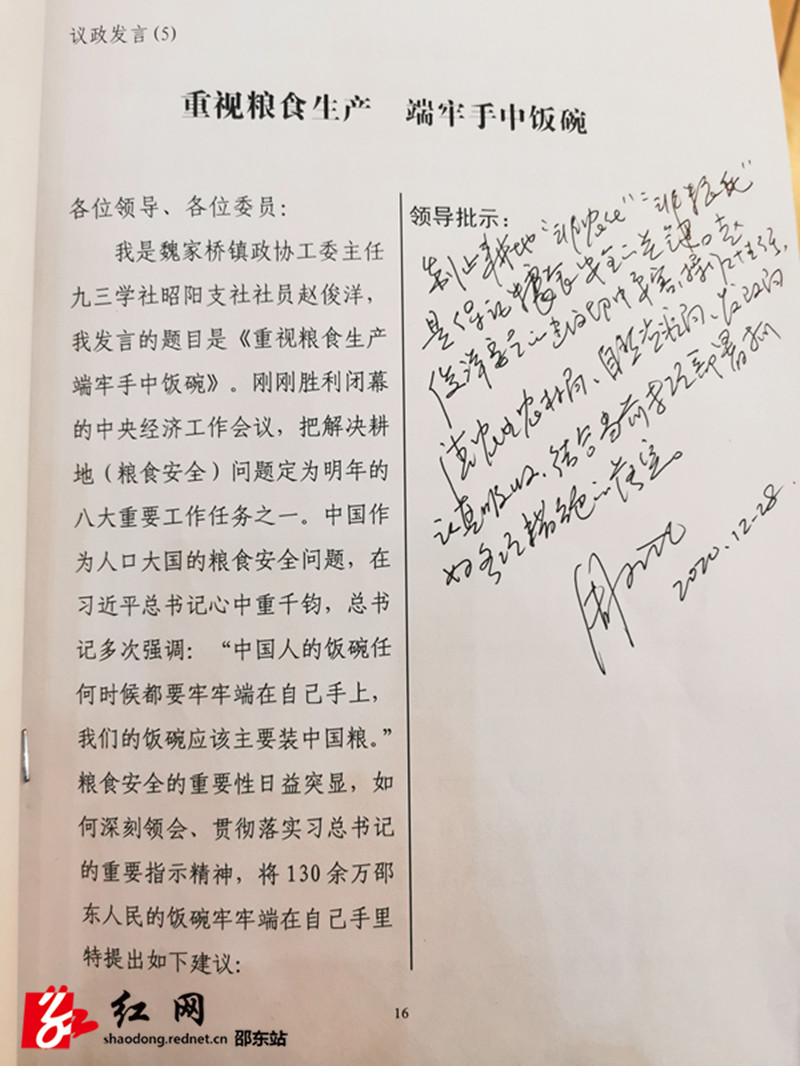 议政发言(5)
重视粮食生产 端牢手中饭碗
各位领导、各位委员：
我是魏家桥镇政协工委主任
九三学社昭阳支社社员赵俊洋，
我发言的题目是《重视粮食生产
端牢手中饭碗》。刚刚胜利闭幕
的中央经济工作会议，把解决耕
地（粮食安全）问题定为明年的
八大重要工作任务之一。中国作
为人口大国的粮食安全问题，在
习近平总书记心中重千钧，总书
记多次强调：“中国人的饭碗任
何时候都要牢牢端在自己手上，
我们的饭碗应该主要装中国粮。”
粮食安全的重要性日益突显，如
何深刻领会、贯彻落实习总书记
的重要指示精神，将130余万邵
东人民的饭碗牢牢端在自己手里
特提出如下建议：
领导批示：
制止耕地“非农化”“非粮化”
是保证粮食安全的关键。赵
俊洋委员的建议切中要害，
请农业农村局、自然资源局、发改局
认真吸收，结合当前
各项措施的落实。
2020.12-28.
16
红网
shaodong.rednet.cn 邵东站